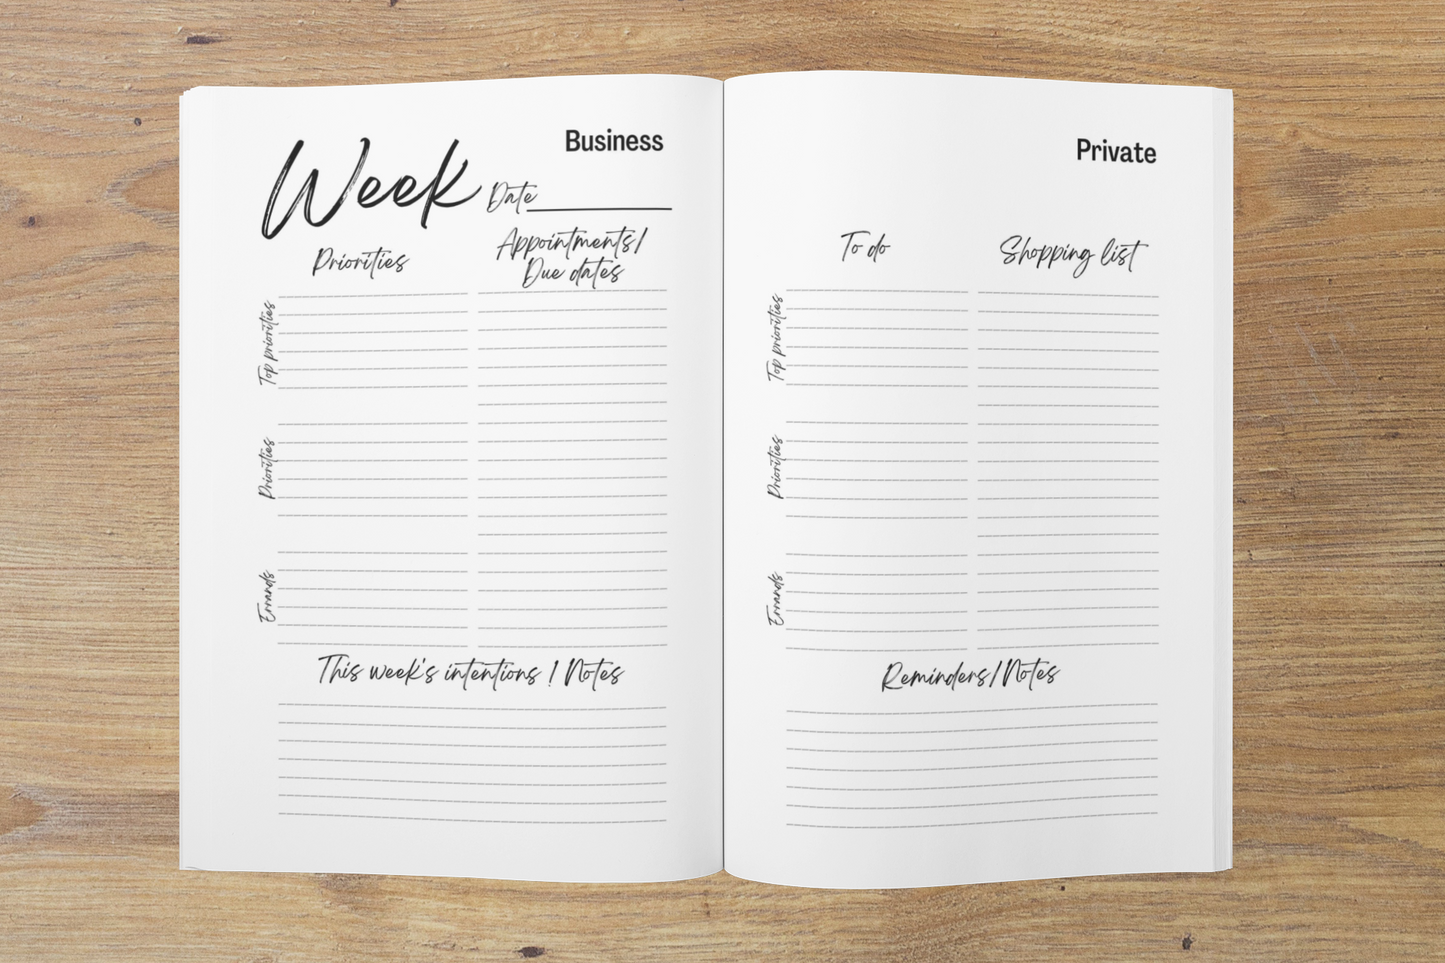 Business
Week Date
Priorities
Appointments/
Due dates
Top priorities
Priorities
Errands
This week's intentions / Notes
Private
To do
Shopping list
Top priorities
Priorities
Errands
Reminders/Notes